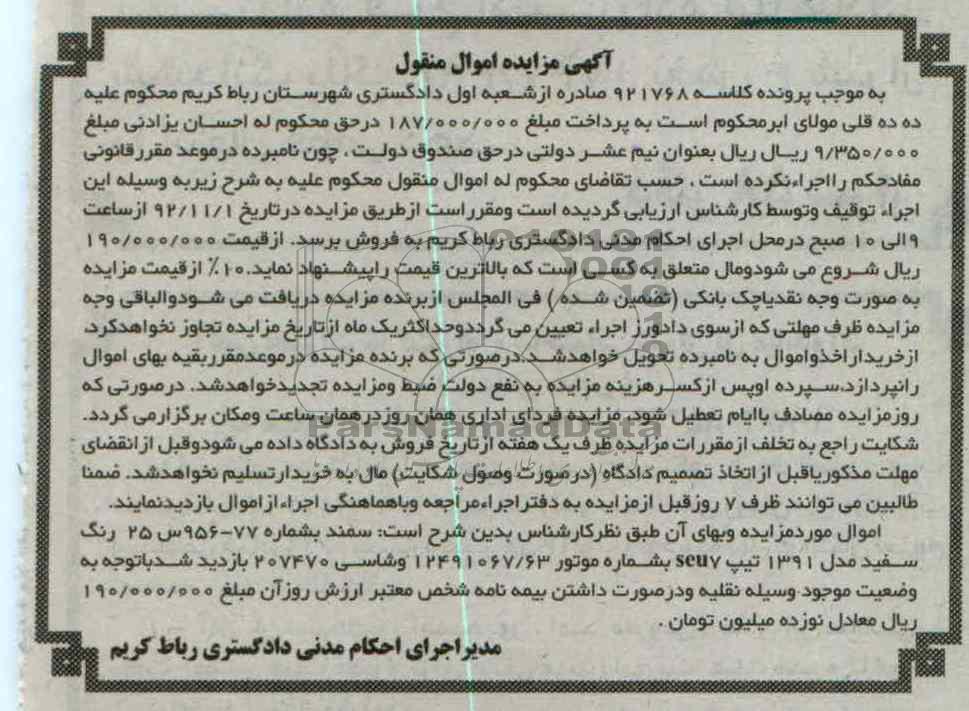 آگهی مزایده اموال منقول
به موجب پرونده کلاسه ۹۲۱۷۶۸ صادره ازشعبه اول دادگستری شهرستان رباط کریم محکوم علیه
ده ده قلی مولای ابرمحکوم است به پرداخت مبلغ ۱۸۷/۰۰۰/۰۰۰ درحق محکوم له احسان یزادنی مبلغ
۹/۳۵۰/۰۰۰ ریال ریال بعنوان نیم عشر دولتی درحق صندوق دولت ، چون نامبرده درموعد مقررقانونی
مفادحکم رااجراءنکرده است ، حسب تقاضای محکوم له اموال منقول محکوم علیه به شرح زیربه وسیله این
اجراء توقیف وتوسط کارشناس ارزیابی گردیده است ومقرراست ازطریق مزایده درتاریخ ۹۲/۱۱/۱ ازساعت
۹الی ۱۰ صبح درمحل اجرای احکام مدنی دادگستری رباط کریم به فروش برسد. ازقیمت ۱۹۰/۰۰۰/۰۰۰
ریال شروع می شودومال متعلق به کسی است که بالاترین قیمت راپیشنهاد نماید.۱۰٪ ازقیمت مزایده
به صورت وجه نقدیاچک بانکی (تضمین شده ) فی المجلس ازبرنده مزایده دریافت می شودوالباقی وجه
مزایده ظرف مهلتی که ازسوی دادورز اجراء تعیین می گرددوحداکثریک ماه ازتاریخ مزایده تجاوز نخواهدکرد،
ازخریداراخذواموال به نامبرده تحویل خواهدشد.درصورتی که برنده مزایده درموعدمقرربقیه بهای اموال
رانپردازد،سپرده اوپس ازکسرهزینه مزایده به نفع دولت ضبط ومزایده تجدیدخواهدشد. درصورتی که
روزمزایده مصادف باایام تعطیل شود، مزایده فردای اداری همان روزدرهمان ساعت ومکان برگزارمی گردد.
شکایت راجع به تخلف ازمقررات مزایده ظرف یک هفته ازتاریخ فروش به دادگاه داده می شودوقبل ازانقضای
مهلت مذکوریاقبل ازاتخاذ تصمیم دادگاه (درصورت وصول شکایت) مال به خریدارتسلیم نخواهدشد. ضمنا
طالبین می توانند ظرف ۷ روزقبل ازمزایده به دفتراجراءمراجعه وباهماهنگی اجراءازاموال بازدیدنمایند.
اموال موردمزایده وبهای آن طبق نظرکارشناس بدین شرح است: سمند بشماره ۷۷-۹۵۶س ۲۵ رنگ
سفید مدل ۱۳۹۱ تیپ seu۷ بشماره موتور ۱۲۴۹۱۰۶۷/۶۳ وشاسی ۲۰۷۴۷۰ بازدید شدباتوجه به
وضعیت موجود وسیله نقلیه ودرصورت داشتن بیمه نامه شخص معتبر ارزش روزآن مبلغ ۱۹۰/۰۰۰/۰۰۰
ریال معادل نوزده میلیون تومان .
مدیراجرای احکام مدنی دادگستری رباط کریم
ParsNamadData